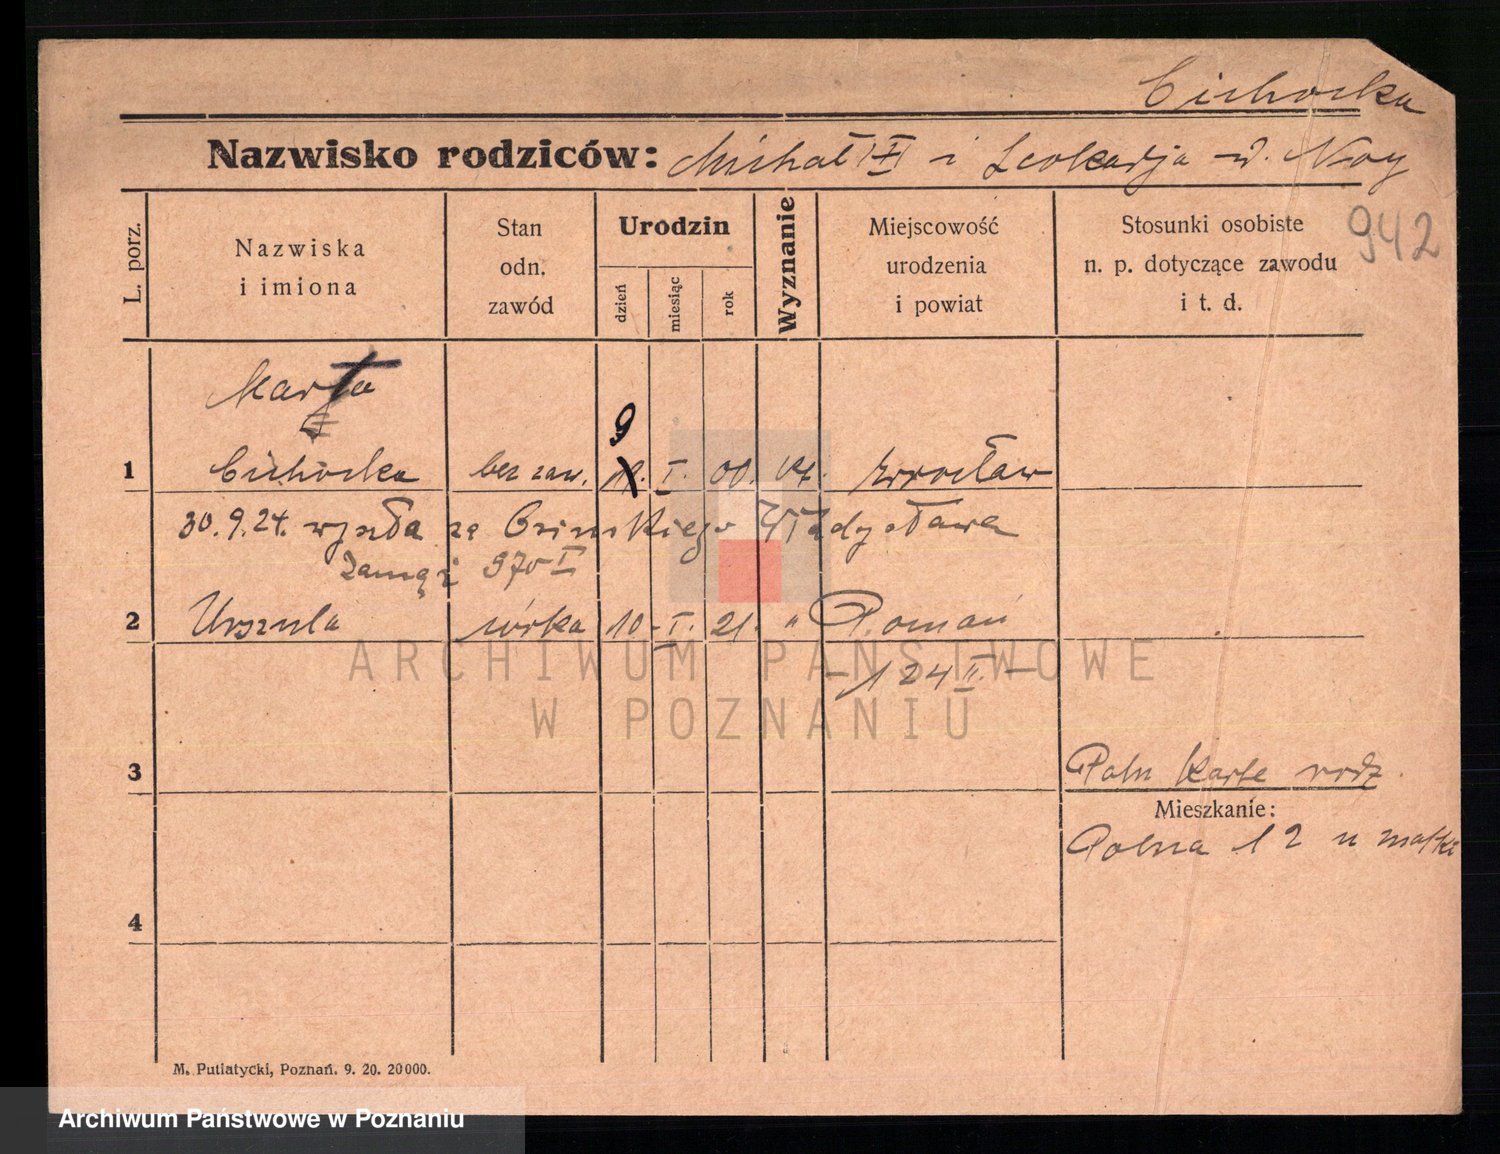 Cichocka
Nazwisko rodziców: Michał i Leokadja
L. porz.
Nazwiska i imiona
Stan odn. zawód
Urodzin
dzień
miesiąc
rok
Wyznanie
Miejscowość urodzenia i powiat
Stosunki osobiste n. p. dotyczące zawodu i t. d.
942
Marta
9
1 Cichocka bez zaw. I. 00. kt. Wrocław
30.9.24. wyszła za Władysława
Zamąż 970 I
2 Urszula córka 10. I. 21. " Poznań
124 II.
3
Karte
Mieszkanie:
Polna 12 u matki
4
M. Putiatycki, Poznań. 9. 20. 20000.
ARCHIWUM PAŃSTWOWE
W POZNANIU
Archiwum Państwowe w Poznaniu